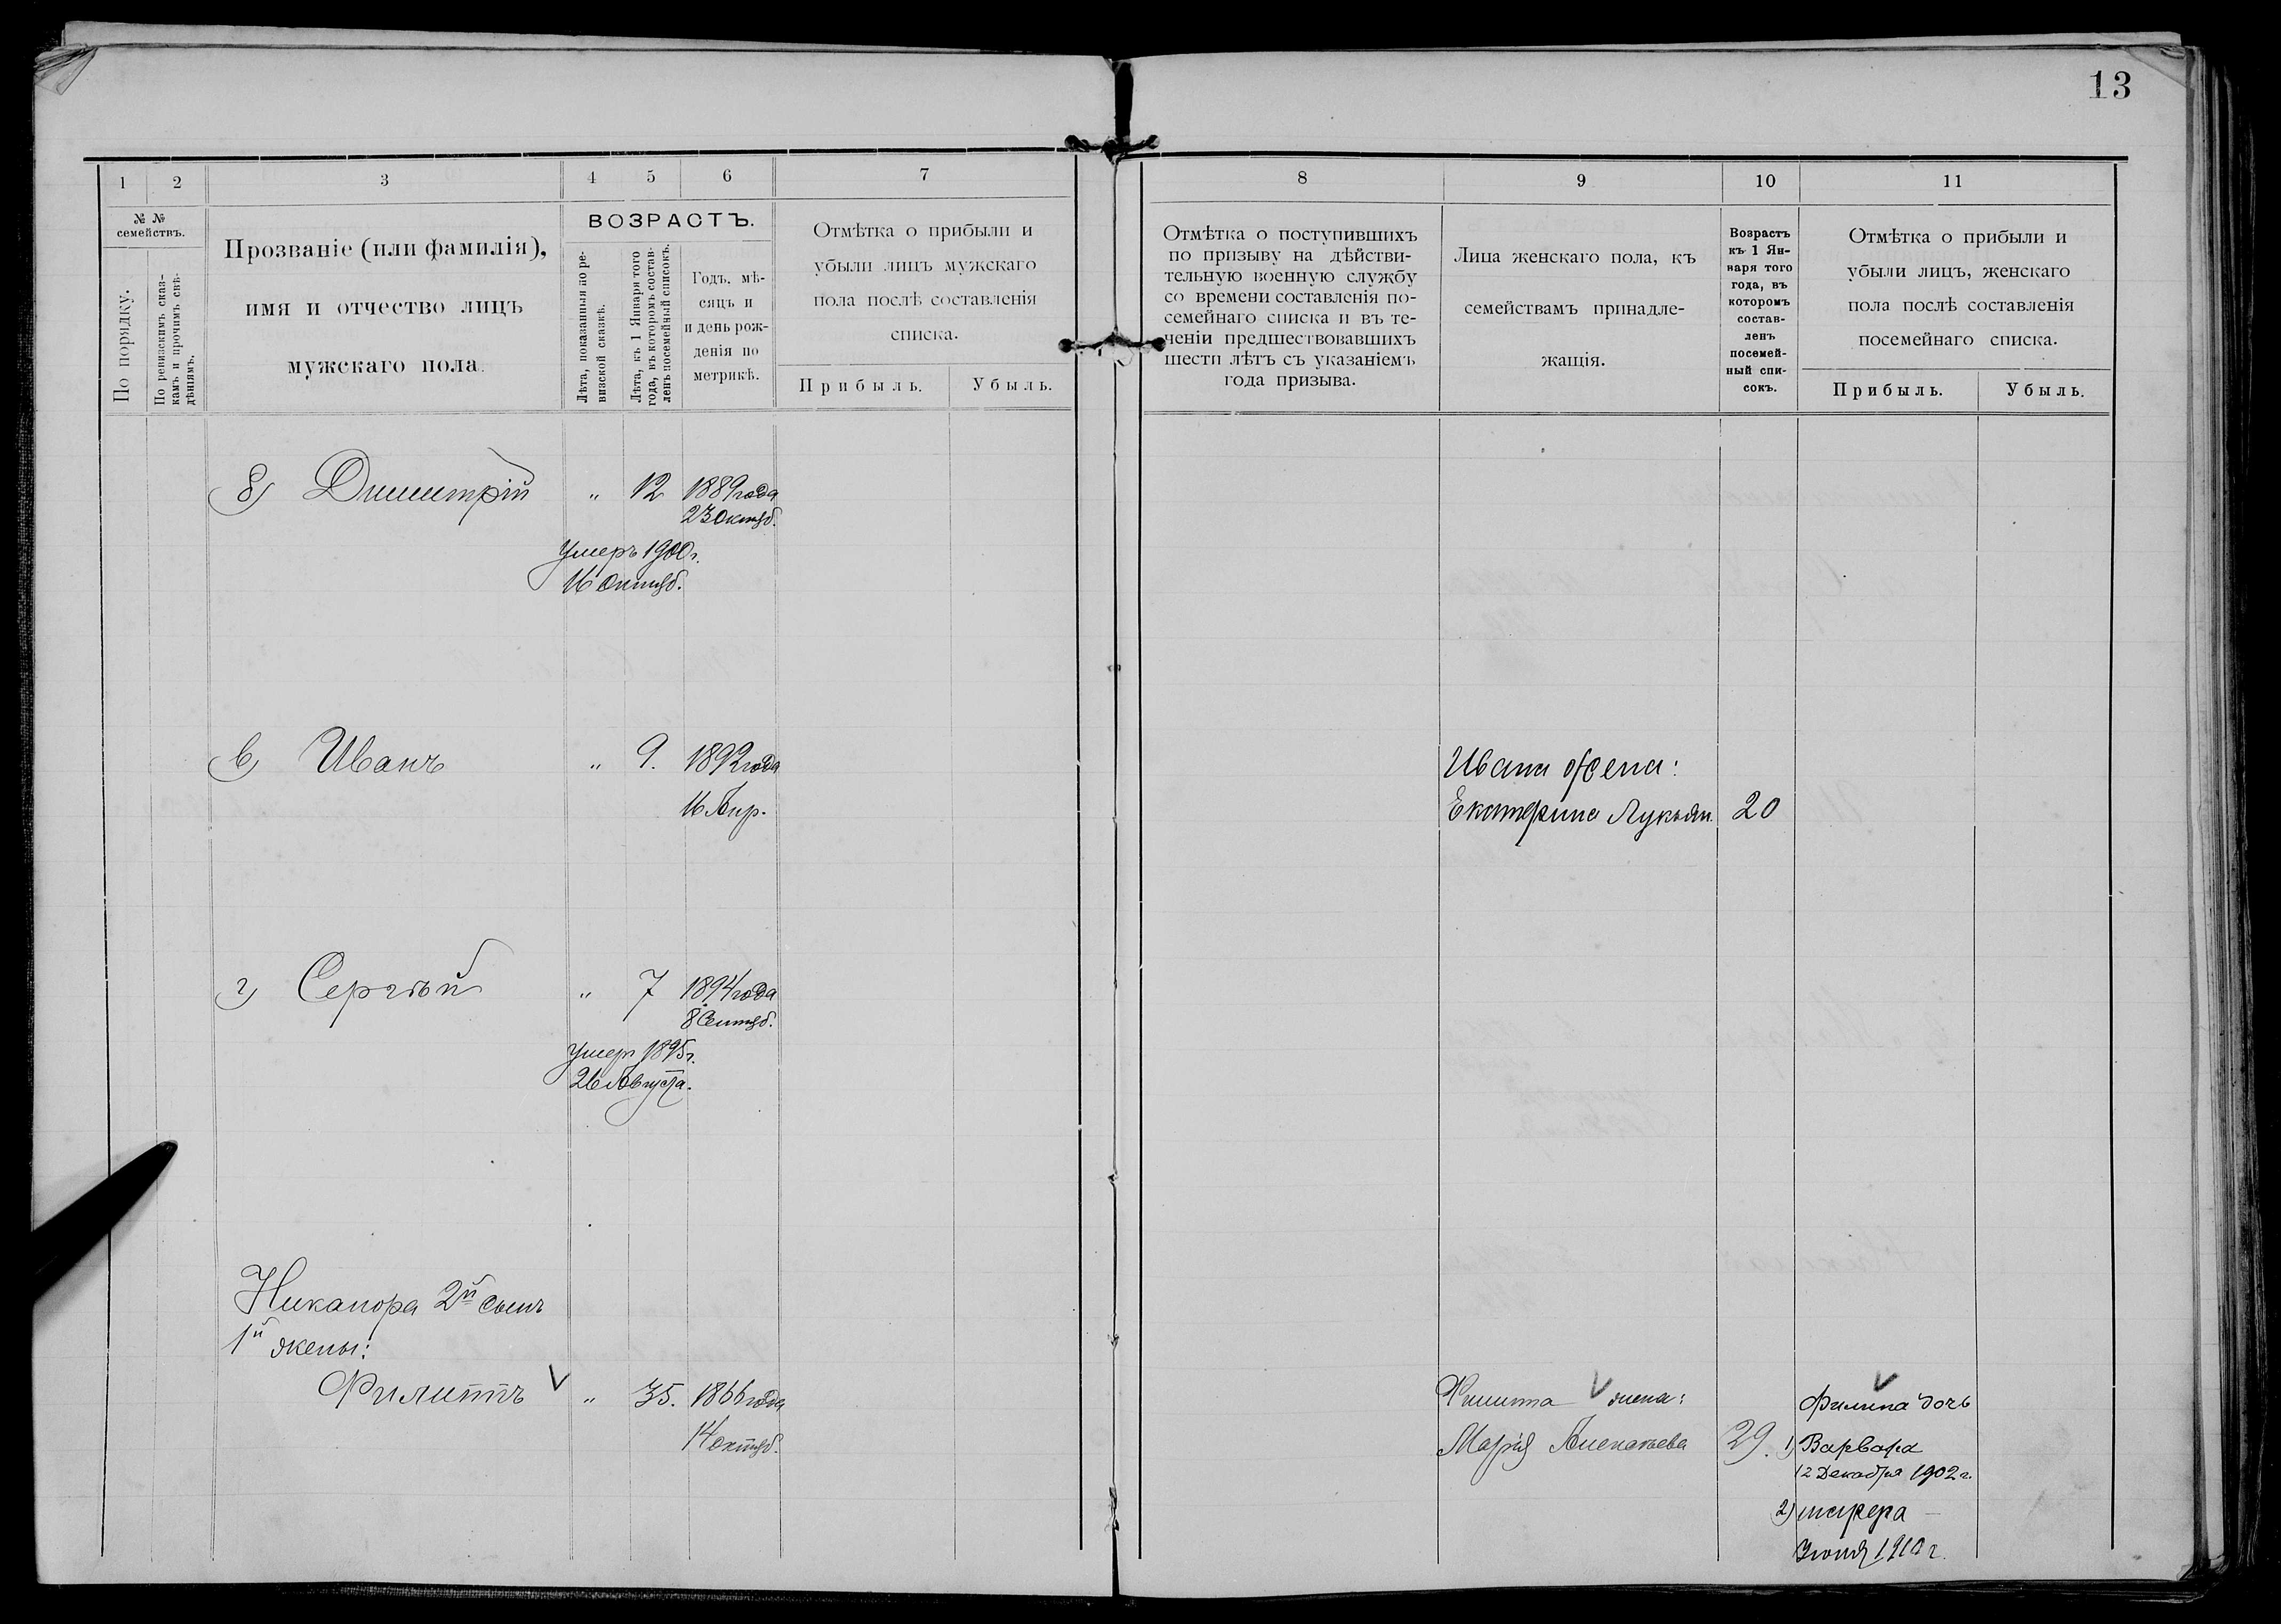 13
1 2 3 4 5 6 7
№ №
семействъ.
По порядку.
По ревизскимъ сказ-
камъ и прочимъ свѣ-
дѣніямъ.
Прозваніе (или фамилія),
имя и отчество лицъ
мужскаго пола.
ВОЗРАСТЪ.
Лѣта, показанныя по ре-
визской сказкѣ.
Лѣта, къ 1 Января того
года, въ которомъ состав-
ленъ посемейный списокъ.
Годъ, мѣ-
сяцъ и
и день рож-
денія по
метрикѣ.
Отмѣтка о прибыли и
убыли лицъ мужскаго
пола послѣ составленія
списка.
Прибыль. Убыль.
б) Димитрій " 12 1889 года
23 октяб.
Умеръ 1900 г.
16 Октяб.
в) Иванъ " 9. 1892 года
16 Апр.
г) Сергѣй " 7 1894 года
8 Сентяб.
Умеръ 1895 г.
26 Августа.
Никанора 2й сынъ
1й жены:
Филиппъ " 35. 1866 года
14 октяб.
8 9 10 11
Отмѣтка о поступившихъ
по призыву на дѣйстви-
тельную военную службу
со времени составленія по-
семейнаго списка и въ те-
ченіи предшествовавшихъ
шести лѣтъ съ указаніемъ
года призыва.
Лица женскаго пола, къ
семействамъ принадле-
жащія.
Возрастъ
къ 1 Ян-
варя того
года, въ
которомъ
состав-
ленъ
посемей-
ный спи-
сокъ.
Отмѣтка о прибыли и
убыли лицъ, женскаго
пола послѣ составленія
посемейнаго списка.
Прибыль. Убыль.
Ивана жена:
Екатерина Лукьян. 20
Филиппа жена:
Марія 29.
Филипа дочь
1) Варвара
12 Декабря 1902 г.
2)
Іюня 1910 г.